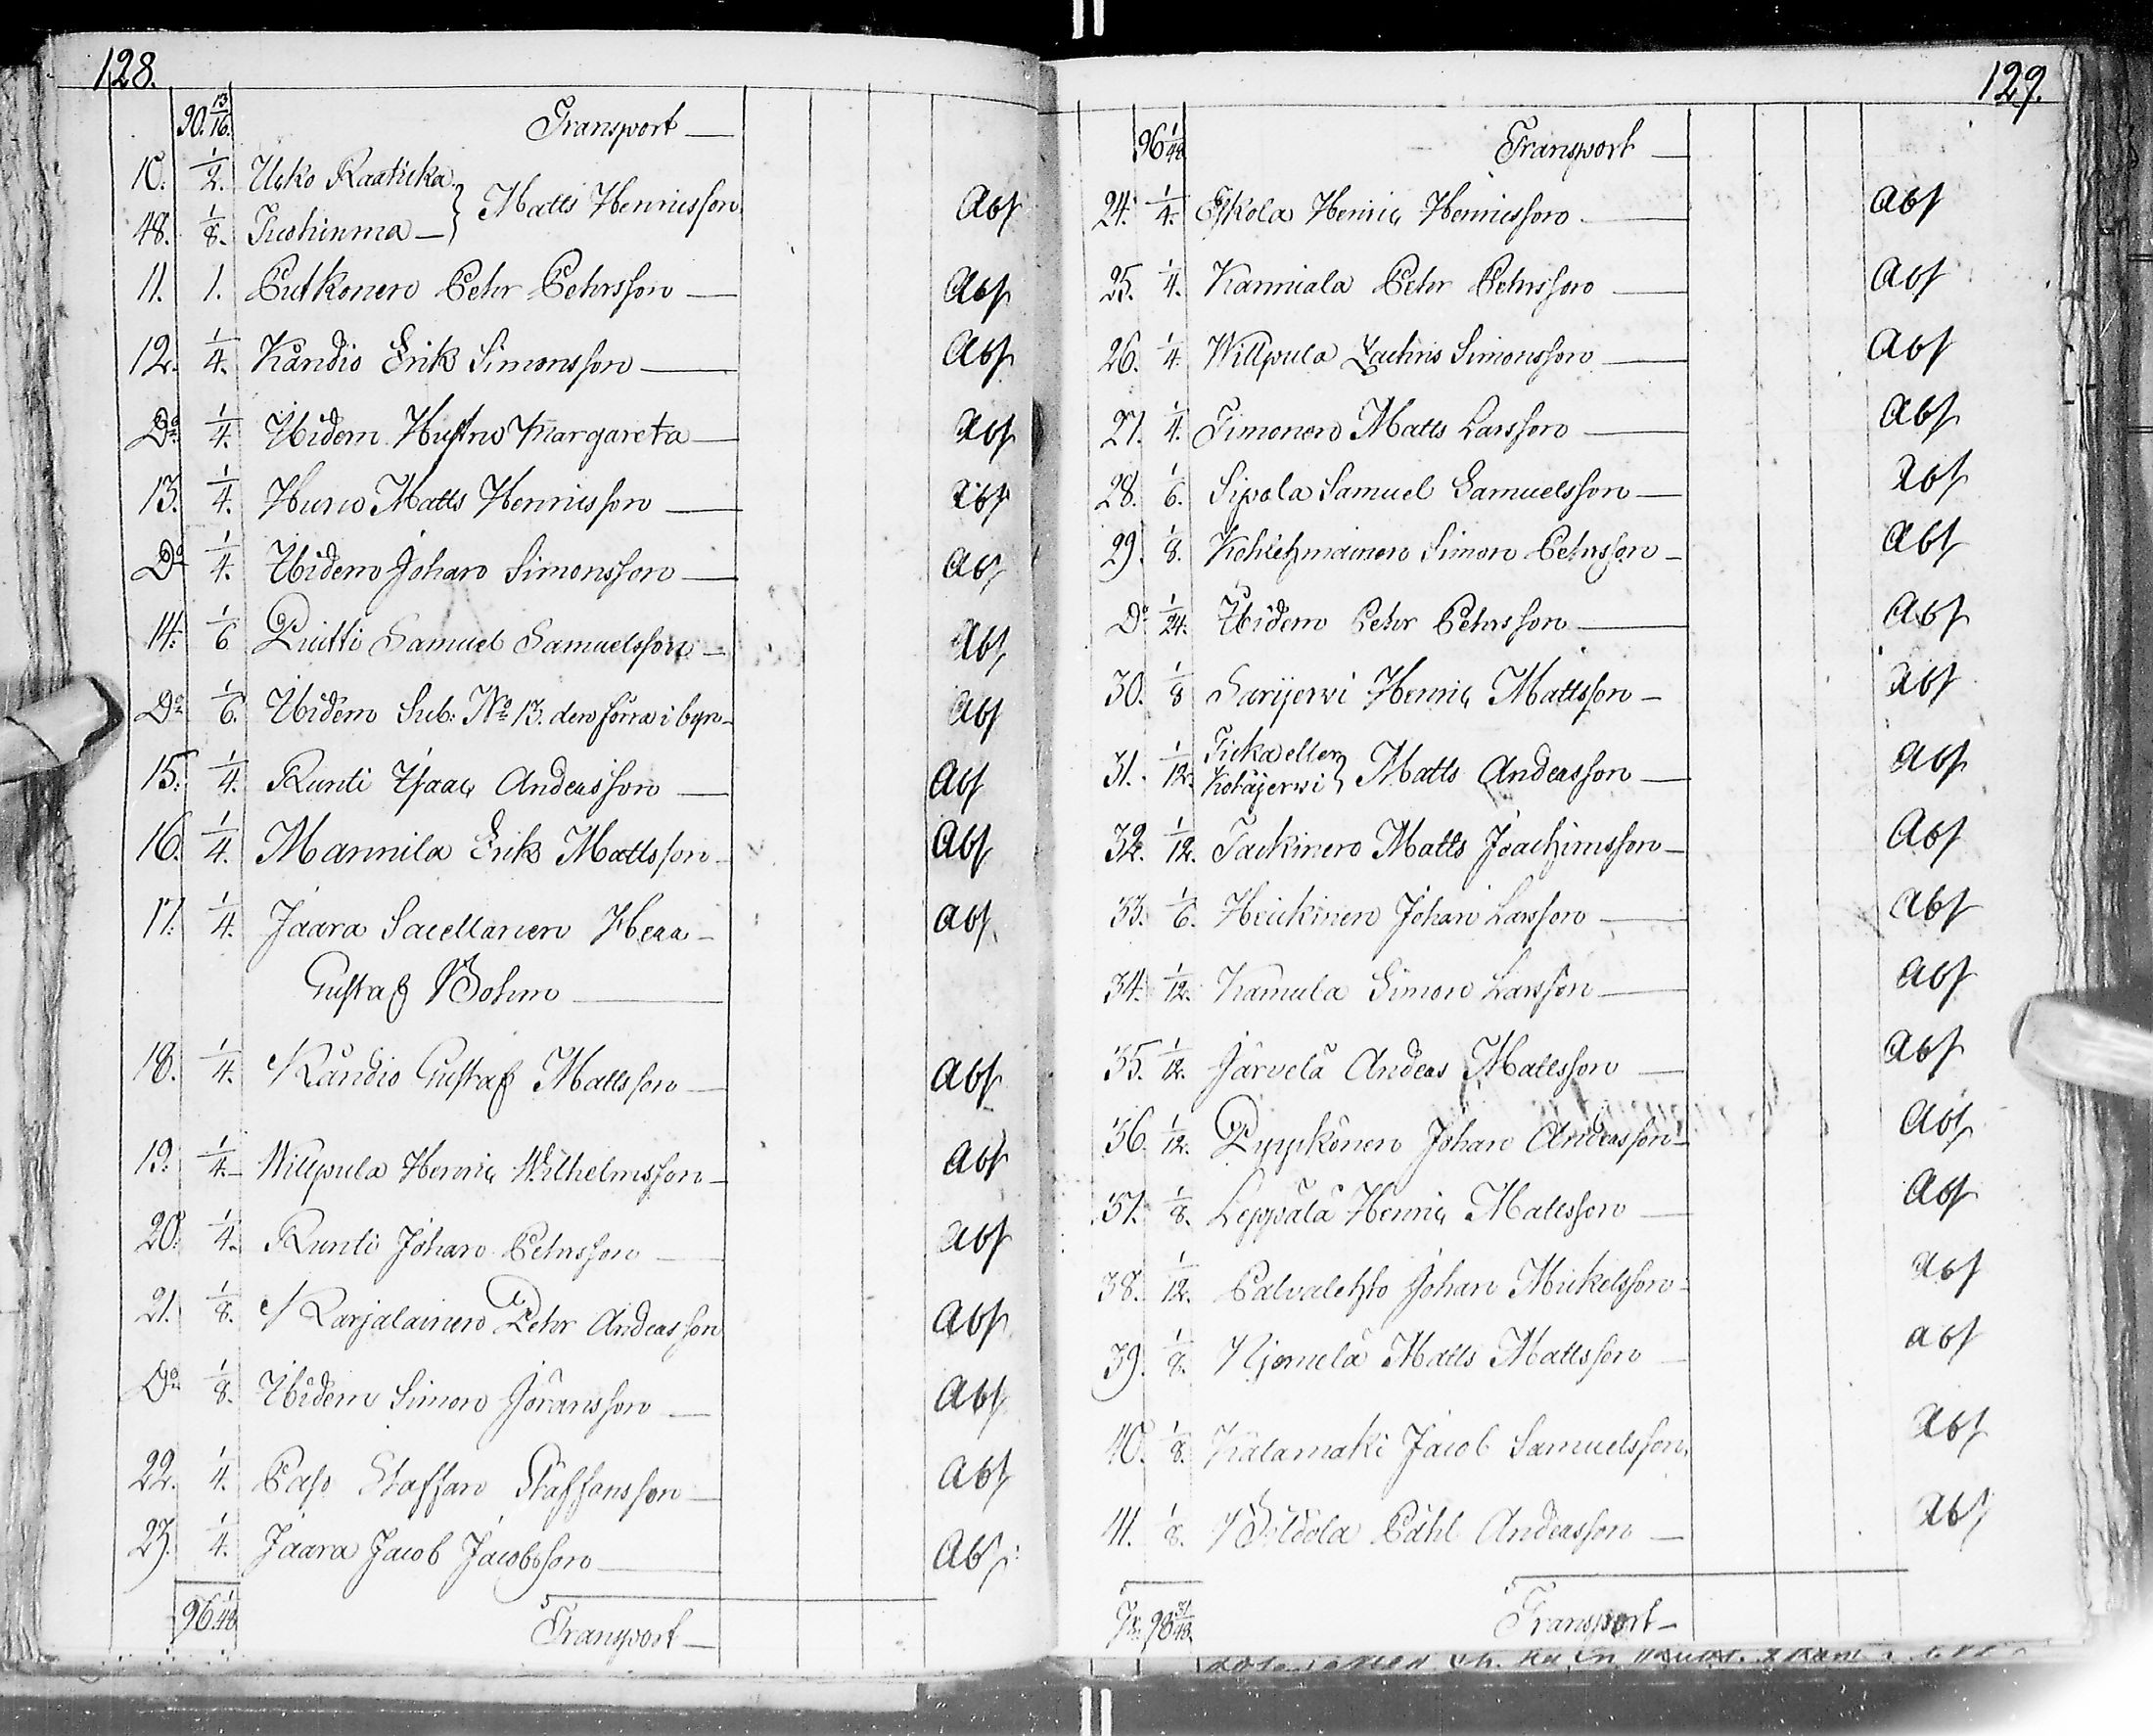 128.
90. 13/16. Transport —
10. 1/2. Ucko Raaticka } Matts Henricsson Abs
48. 1/8. Juohinma — }
11. 1. Putkonen Pehr Pehrsson — Abs
12. 1/4. Kändio Erik Simonsson — Abs
Do 1/4. Ibidem Hustru Margareta — Abs
13. 1/4. Huru Matts Henricsson — Abs
Do 1/4. Ibidem Johan Simonsson — Abs
14. 1/6 Piutti Samuel Samuelsson — Abs
Do 1/6. Ibidem Sub. No 13. den förra i byn — Abs
15. 1/4. Runti Isaac Andersson — Abs
16. 1/4. Mannila Erik Mattsson — Abs
17. 1/4. Jaara Saellanen Hera — Abs
Gustaf Bohm —
18. 1/4. Kändio Gustaf Mattsson — Abs
19. 1/4. Willpula Henric Wilhelmsson — Abs
20. 1/4. Runti Johan Pehrsson — Abs
21. 1/8. Karjalainen Pehr Andersson Abs
Do 1/8. Ibidem Simon Göransson — Abs
22. 1/4. Paso Staffan Staffansson — Abs
23. 1/4. Jaara Jacob Jacobsson — Abs
96. 1/48 Transport —
129.
96 1/48 Transport —
24. 1/4. Eskola Henric Henricsson — Abs
25. 1/4. Kanniala Pehr Pehrsson — Abs
26. 1/4. Willpula Zachris Simonsson — Abs
27. 1/4. Timonen Matts Larsson — Abs
28. 1/6. Sipola Samuel Samuelsson — Abs
29. 1/8. Kohlehmainen Simon Pehrsson — Abs
Do 1/24. Ibidem Pehr Pehrsson — Abs
30. 1/8 Sarijerwi Henric Mattsson — Abs
31. 1/12. Ticka eller } Matts Andersson — Abs
Kotajerwi }
32. 1/12. Tackinen Matts Joachimsson — Abs
33. 1/6. Heickinen Johan Larsson — Abs
34. 1/12. Kamula Simon Larsson — Abs
35. 1/12. Järvelä Anders Mattsson — Abs
36. 1/12. Pyykönen Johan Andersson — Abs
37. 1/8. Leppälä Henric Mattsson — Abs
38. 1/12. Palvalehto Johan Mickelsson — Abs
39. 1/8. Niemelä Matts Mattsson — Abs
40. 1/8. Kalamaki Jacob Samuelsson Abs
41. 1/8. Påhl Andersson — Abs
98 31/48. Transport —